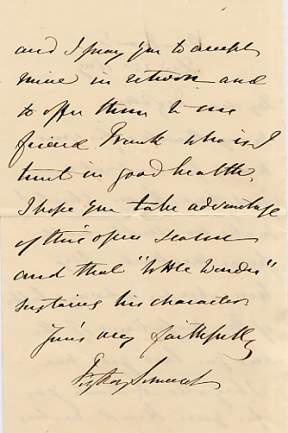 and I pray you to accept
mine in return and
to offer them to my
friend Frank who is I
trust in good health.
I hope you take advantage
of this open season
and that "Little Wonder"
sustains his character
Yours very faithfully